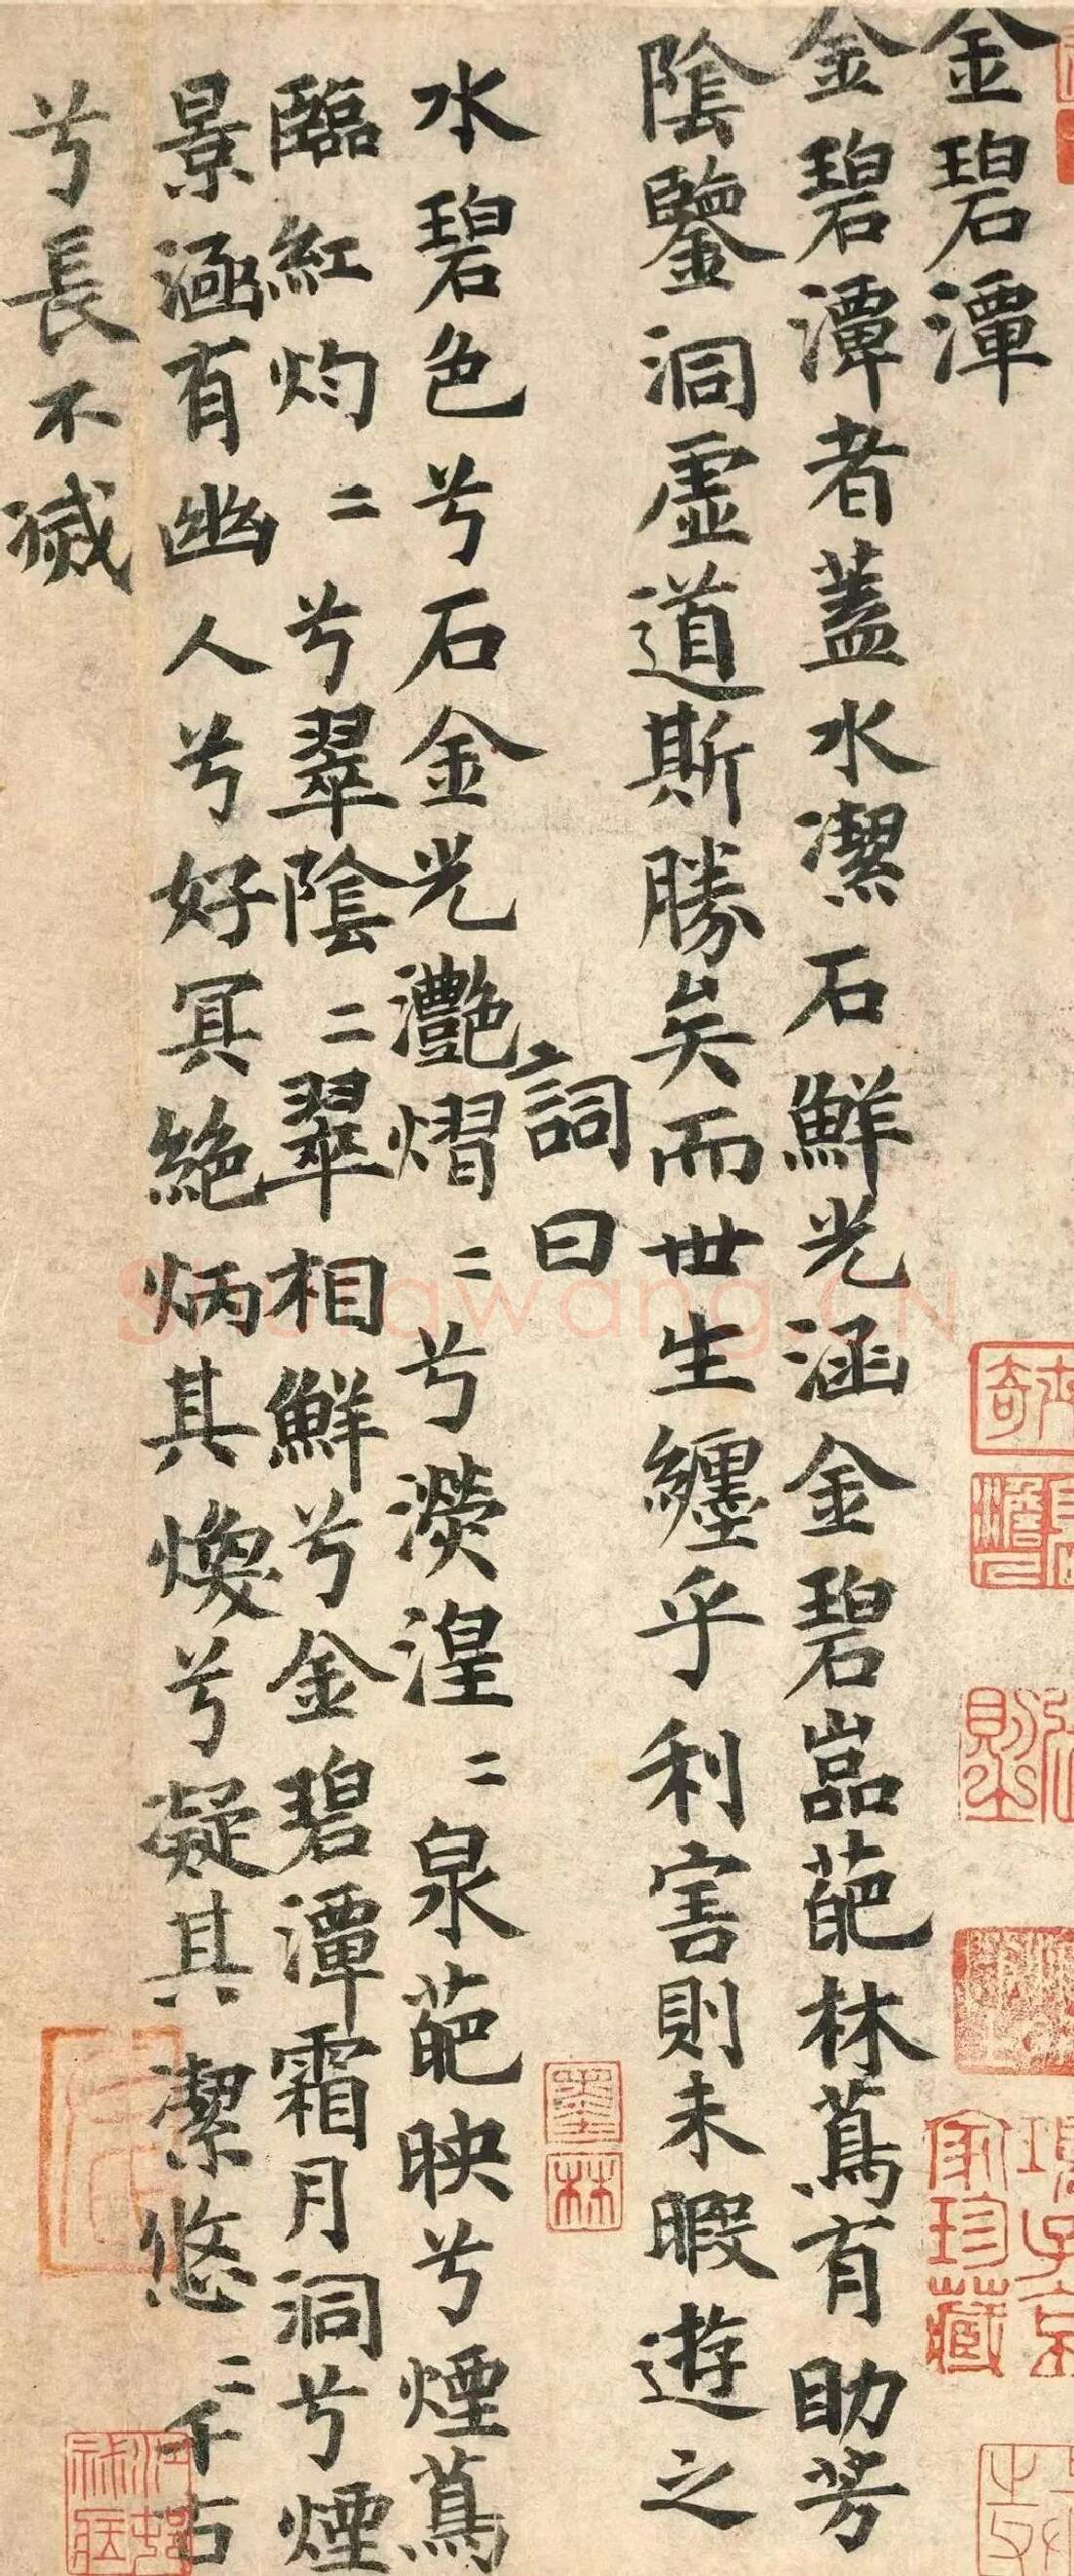 金碧潭
金碧潭者蓋水潔石鮮光涵金碧嵓葩林蔦有助芳
陰鑒洞虛道斯勝矣而世生纏乎利害則未暇遊之
詞曰
水碧色兮石金光灔熠〻兮濙湟〻泉葩映兮煙蔦
臨紅灼〻兮翠陰〻翠相鮮兮金碧潭霜月洞兮煙
景涵有幽人兮好冥絶炳其煥兮凝其潔悠〻千古
兮長不滅
墨林
家珍藏